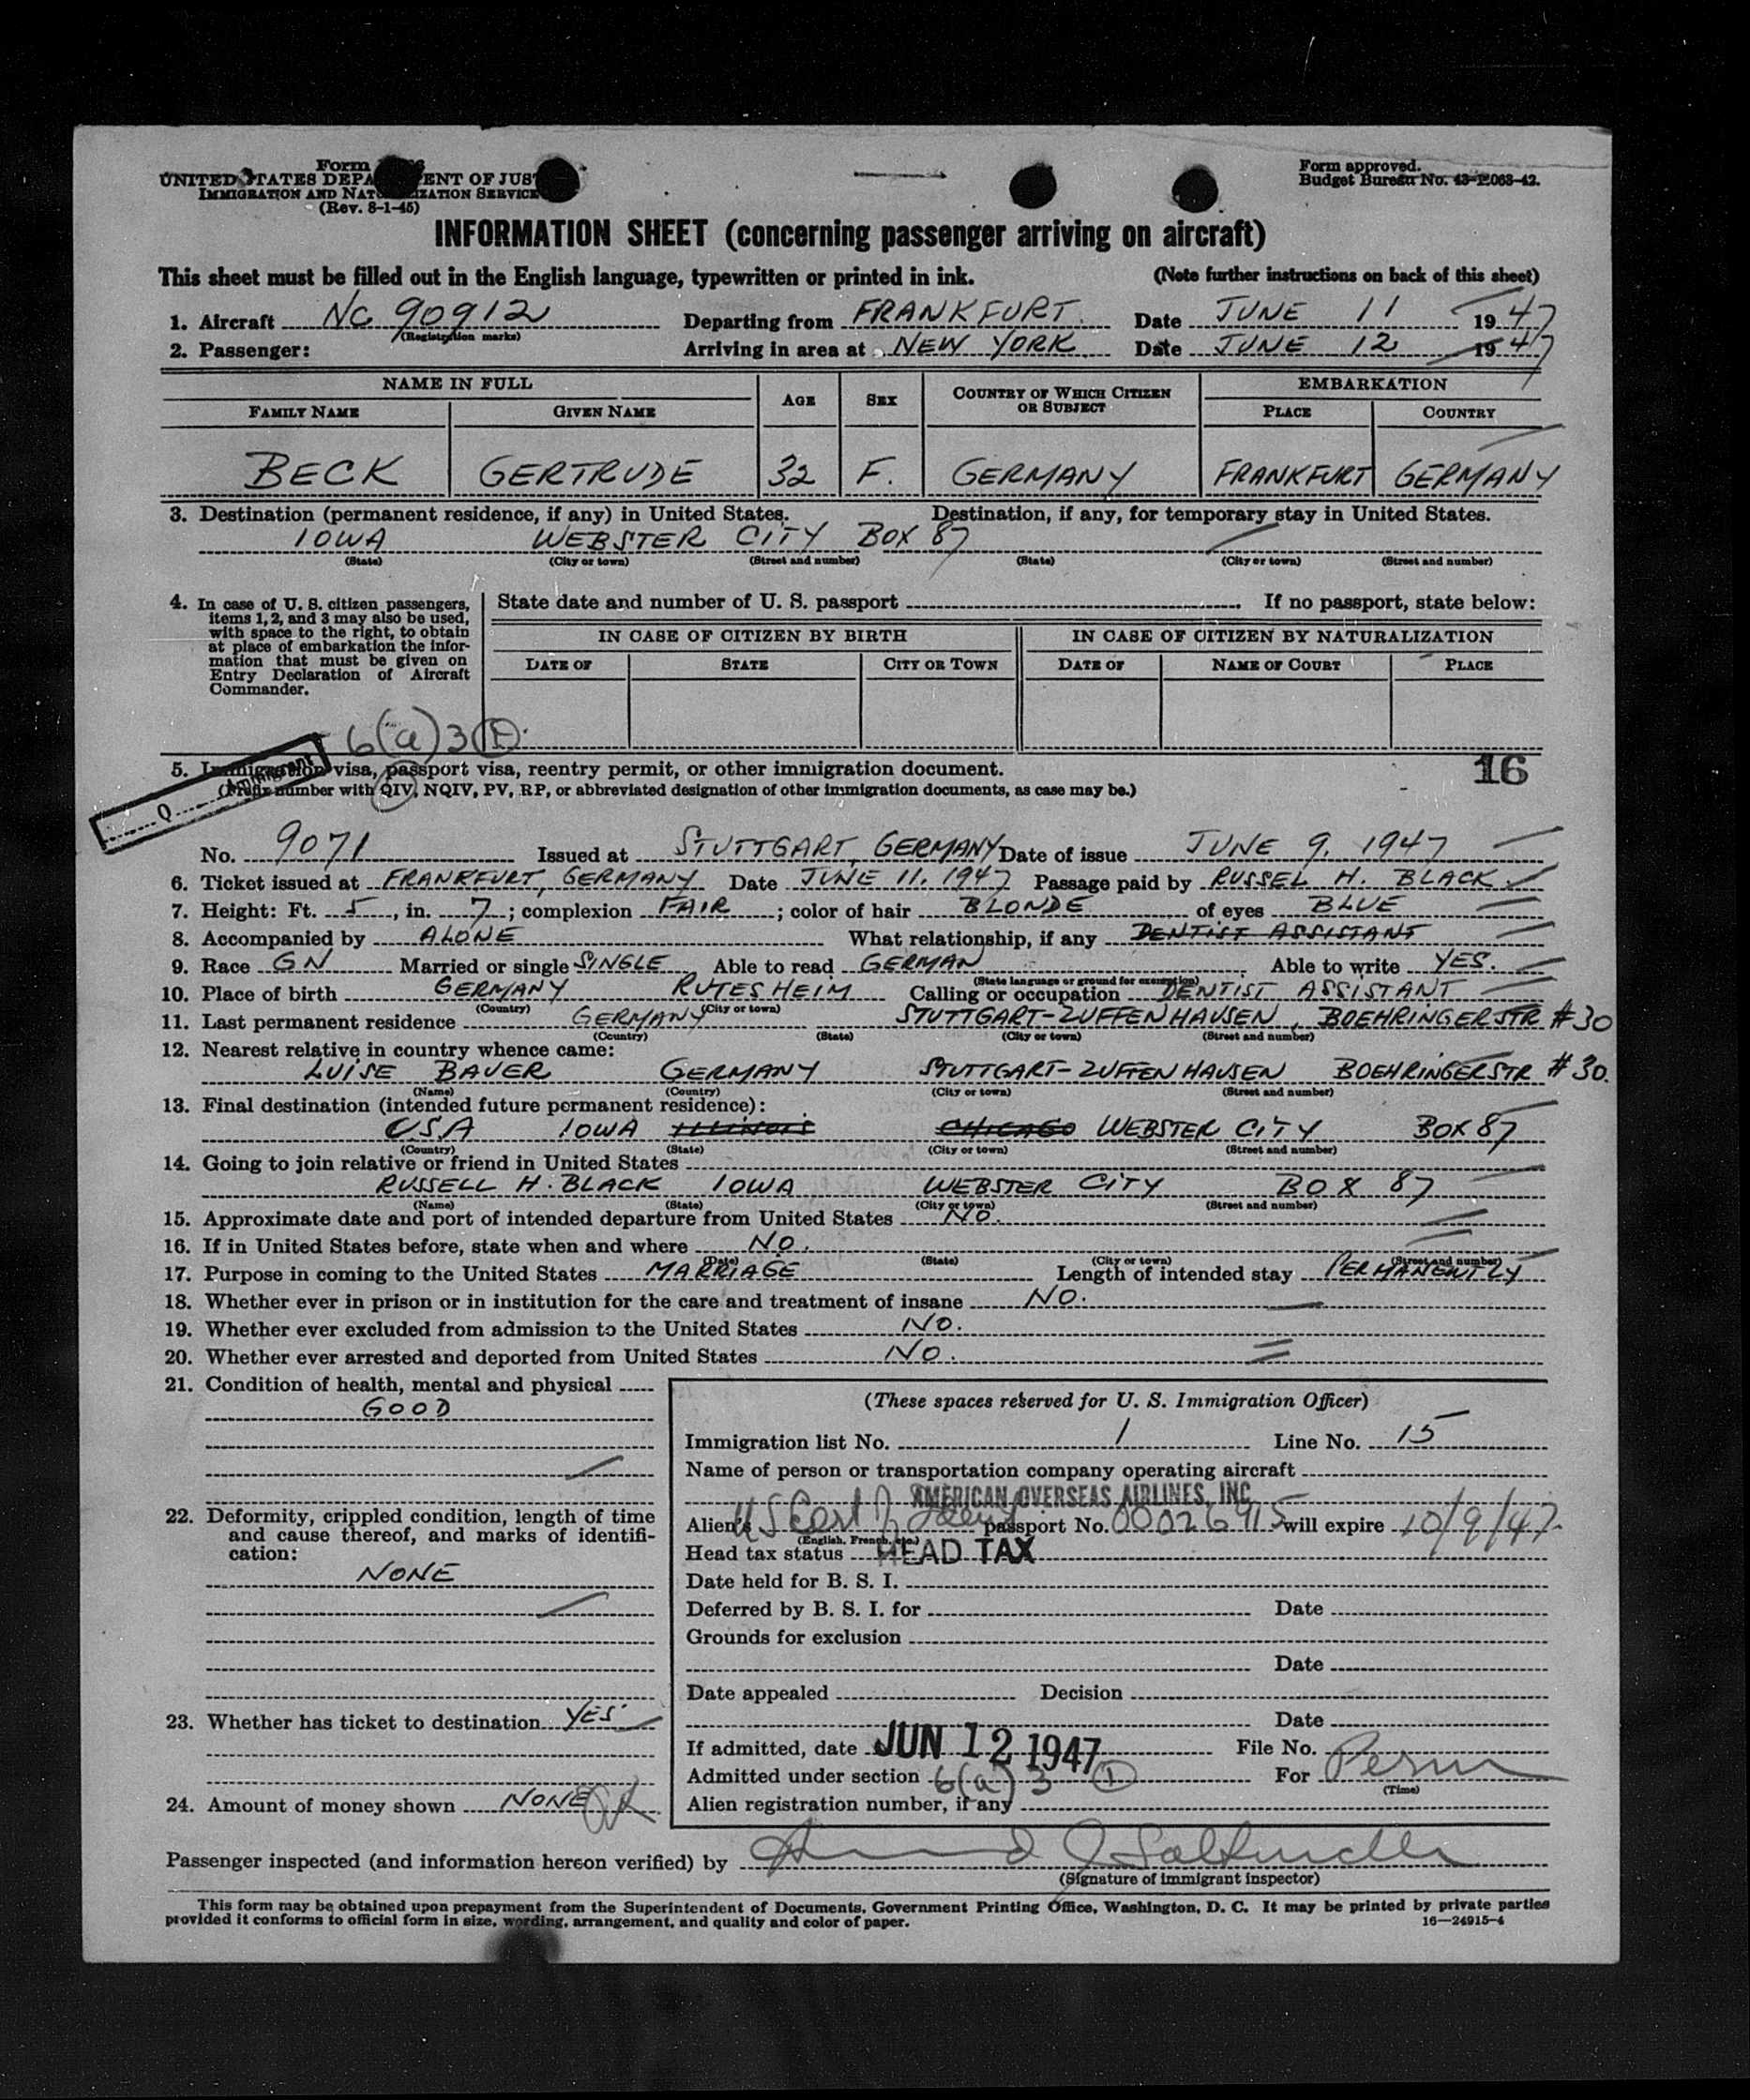 Form
UNITED STATES DEPARTMENT OF JUSTICE
IMMIGRATION AND NATURALIZATION SERVICE
(Rev. 8-1-45)
Form approved.
Budget Bureau No. 43-R063-42.
INFORMATION SHEET (concerning passenger arriving on aircraft)
This sheet must be filled out in the English language, typewritten or printed in ink. (Note further instructions on back of this sheet)
1. Aircraft NC 90912 Departing from FRANKFURT. Date JUNE 11 1947
(Registration marks)
2. Passenger: Arriving in area at NEW YORK Date JUNE 12 1947
NAME IN FULL AGE SEX COUNTRY OF WHICH CITIZEN OR SUBJECT EMBARKATION
FAMILY NAME GIVEN NAME PLACE COUNTRY
BECK GERTRUDE 32 F. GERMANY FRANKFURT GERMANY
3. Destination (permanent residence, if any) in United States. Destination, if any, for temporary stay in United States.
IOWA WEBSTER CITY BOX 87
(State) (City or town) (Street and number) (State) (City or town) (Street and number)
4. In case of U. S. citizen passengers, items 1, 2, and 3 may also be used, with space to the right, to obtain at place of embarkation the information that must be given on Entry Declaration of Aircraft Commander.
State date and number of U. S. passport If no passport, state below:
IN CASE OF CITIZEN BY BIRTH IN CASE OF CITIZEN BY NATURALIZATION
DATE OF STATE CITY OR TOWN DATE OF NAME OF COURT PLACE
6(a)3 (I)
Q Immigrant
16
5. Immigration visa, passport visa, reentry permit, or other immigration document.
(Prefix number with QIV, NQIV, PV, RP, or abbreviated designation of other immigration documents, as case may be.)
No. 9071 Issued at STUTTGART, GERMANY Date of issue JUNE 9. 1947
6. Ticket issued at FRANKFURT, GERMANY Date JUNE 11. 1947 Passage paid by RUSSEL H. BLACK
7. Height: Ft. 5, in. 7; complexion FAIR; color of hair BLONDE of eyes BLUE
8. Accompanied by ALONE What relationship, if any DENTIST ASSISTANT
9. Race GN Married or single SINGLE Able to read GERMAN Able to write YES.
(State language or ground for exemption)
10. Place of birth GERMANY RUTESHEIM Calling or occupation DENTIST ASSISTANT
(Country) (City or town)
11. Last permanent residence GERMANY STUTTGART-ZUFFENHAUSEN, BOEHRINGERSTR #30
(Country) (State) (City or town) (Street and number)
12. Nearest relative in country whence came:
LUISE BAUER GERMANY STUTTGART-ZUFFENHAUSEN BOEHRINGERSTR #30.
(Name) (Country) (City or town) (Street and number)
13. Final destination (intended future permanent residence):
USA IOWA ILLINOIS CHICAGO WEBSTER CITY BOX 87
(Country) (State) (City or town) (Street and number)
14. Going to join relative or friend in United States
RUSSELL H. BLACK IOWA WEBSTER CITY BOX 87
(Name) (State) (City or town) (Street and number)
15. Approximate date and port of intended departure from United States NO.
16. If in United States before, state when and where NO.
(Date) (State) (City or town) (Street and number)
17. Purpose in coming to the United States MARRIAGE Length of intended stay PERMANENTLY
18. Whether ever in prison or in institution for the care and treatment of insane NO.
19. Whether ever excluded from admission to the United States NO.
20. Whether ever arrested and deported from United States NO.
21. Condition of health, mental and physical
GOOD
22. Deformity, crippled condition, length of time and cause thereof, and marks of identification:
NONE
23. Whether has ticket to destination YES
24. Amount of money shown NONE
(These spaces reserved for U. S. Immigration Officer)
Immigration list No. 1 Line No. 15
Name of person or transportation company operating aircraft
AMERICAN OVERSEAS AIRLINES, INC
Alien's US Cert of Ident passport No. 00026915 will expire 10/9/47
(English, French, etc.)
Head tax status HEAD TAX
Date held for B. S. I.
Deferred by B. S. I. for Date
Grounds for exclusion
Date
Date appealed Decision
Date
If admitted, date JUN 12 1947 File No.
Admitted under section 6(a) 3 (I) For Perm
(Time)
Alien registration number, if any
Passenger inspected (and information hereon verified) by
(Signature of immigrant inspector)
This form may be obtained upon prepayment from the Superintendent of Documents, Government Printing Office, Washington, D. C. It may be printed by private parties
provided it conforms to official form in size, wording, arrangement, and quality and color of paper. 16—24915-4